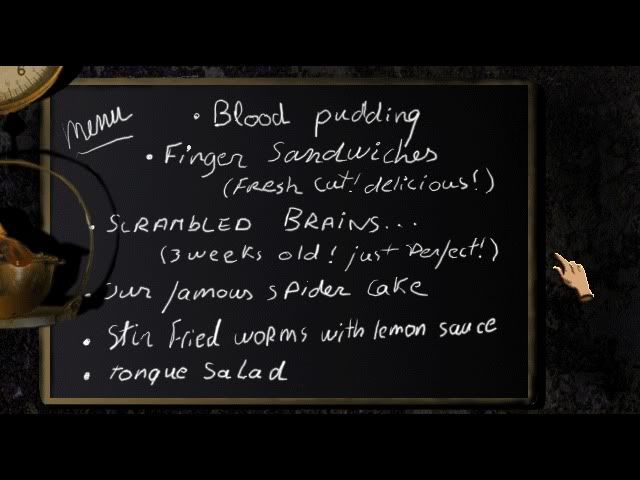 Menu
• Blood pudding
• Finger Sandwiches
(Fresh cut! delicious!)
• SCRAMBLED BRAINS...
(3 weeks old! just perfect!)
• Our famous spider cake
• Stir Fried worms with lemon sauce
• tongue salad
6